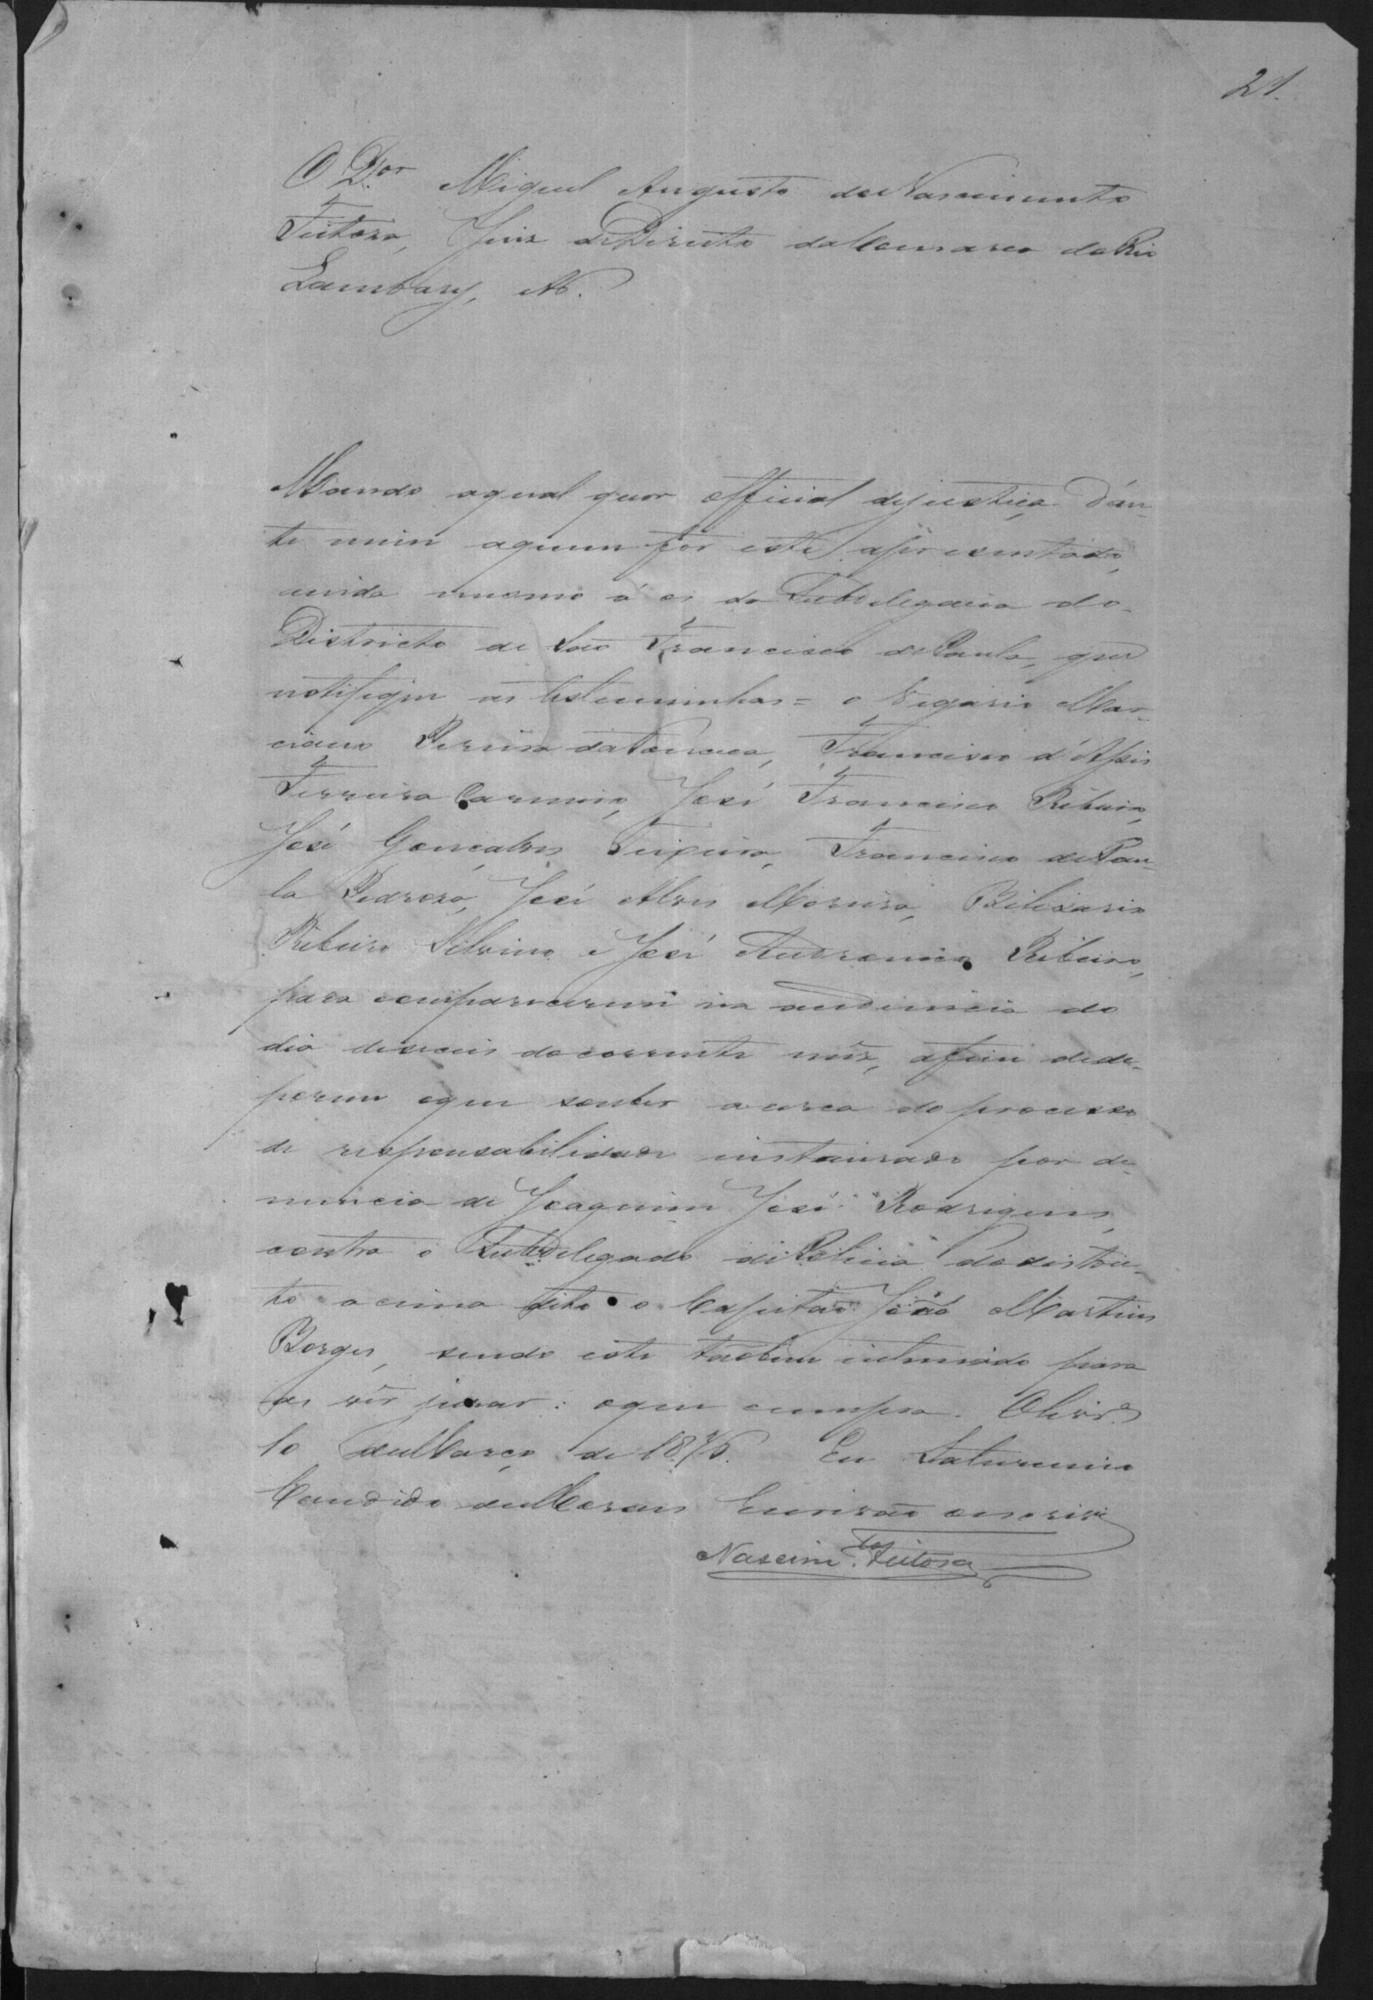 21.
O D.or Miguel Augusto do Nascimento
Feitosa, Juiz de Direito da Comarca do Rio
Lambary, &.
Mando a qual quer official de justiça d'an-
te mim a quem for este apresentado,
inda mesmo á os da Subdelegacia do
Districto de São Francisco de Paula, que
notifique as testeminhas = o Vigario Mar-
ciano Pereira da Fonseca, Francisco d'Assis
Ferreira Carneiro, José Francisco Ribeiro,
José Gonçalves Teixeira, Francisco de Pau-
la Pedrosa, José Alves Moreira, Belisario
Ribeiro Silvino e José Andronico Ribeiro,
para comparecerem na audiencia do
dia deseseis do corrente mês, afim de de-
porem o que souber acerca do processo
de responsabilidade instaurado por de-
nuncia de Joaquim José Rodrigues,
contra o Subdelegado de Policia do distric-
to acima dito o Capitão João Martins
Borges, sendo este tãobem intimado para
as vêr jurar: o que cumpra. Olivr.a
10 de Março de 1875. Eu Saturnino
Candido de Moraes Escrivão escrevi
Nascim.tos Feitosa